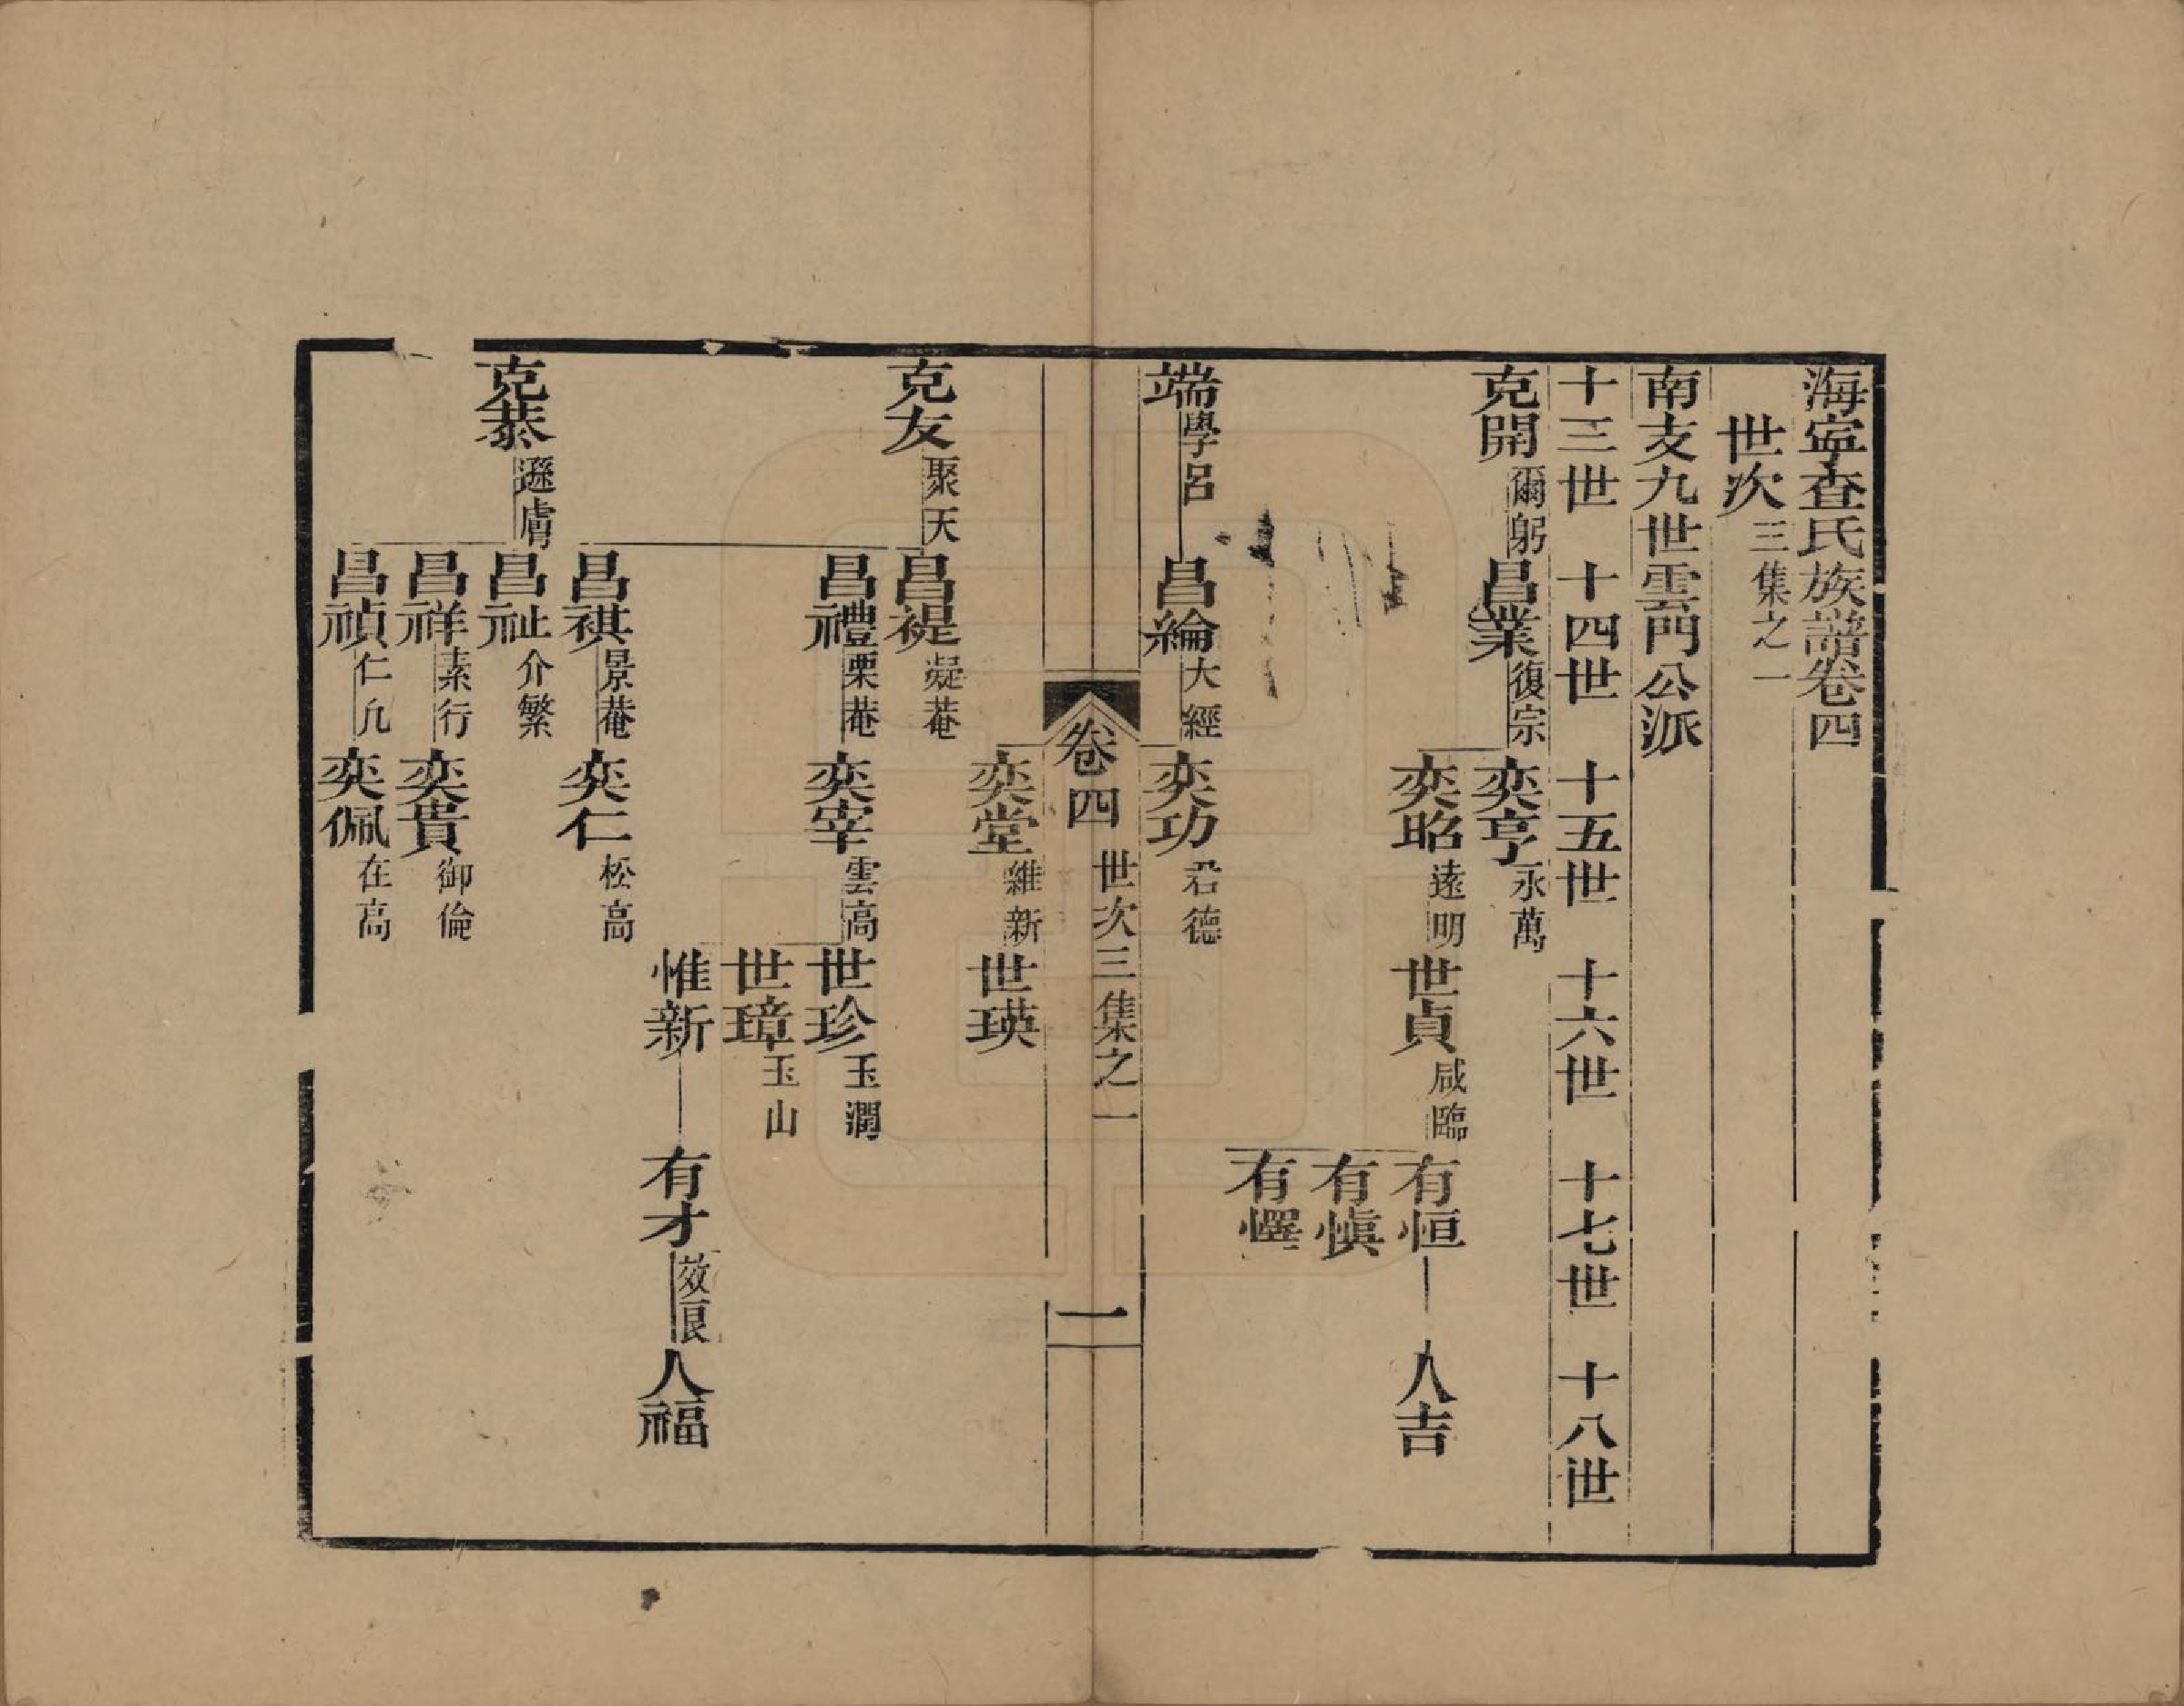 海寧查氏族譜卷四
世次三集之一
南支九世雲門公派
十三世 十四世 十五世 十六世 十七世 十八世
克開爾躬 昌業復宗 奕亨永萬
奕昭遠明 世貞咸臨 有恒 人吉
有慎
有懌
端學呂 昌綸大經 奕功君德
卷四 世次三集之一 一
奕堂維新 世瑛
克友聚天 昌禔凝菴
昌禮栗菴 奕宰雲高 世珍玉潤
世璋玉山
惟新 有才效良 人福
昌祺景菴 奕仁松高
克恭遜膚 昌祉介繁
昌祥素行 奕貴御倫
昌禎仁凢 奕佩在高